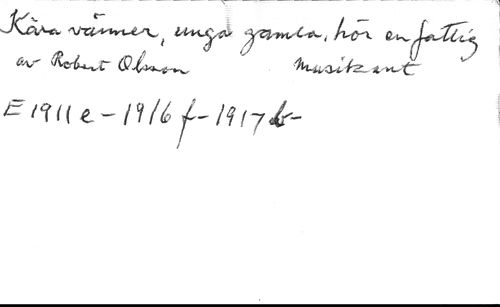 Kära vänner, unga gamla, hör en fattig
av Robert Olsson musikant
E 1911 e - 1916 f - 1917 b -